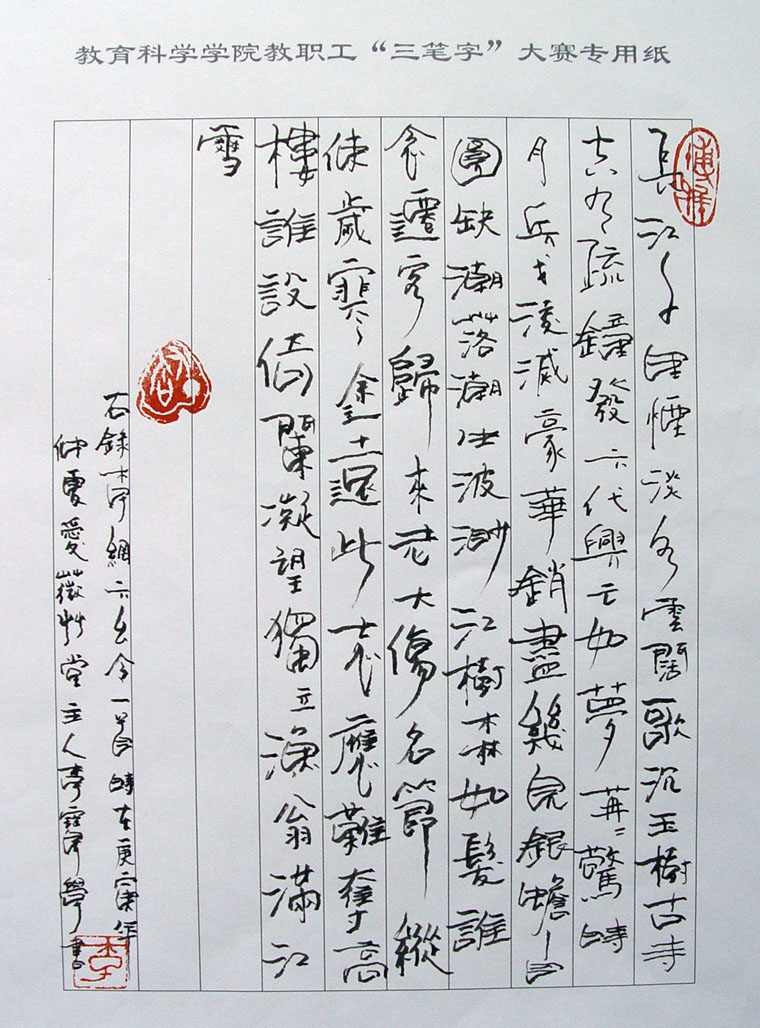 教育科学学院教职工“三笔字”大赛专用纸
長江千里煙淡水雲闊歌沉玉樹古寺
空有疏鐘發六代興亡如夢苒々驚時
月兵戈淩滅豪華銷盡幾見銀蟾自
圓缺潮落潮生波渺江樹森如髮誰
念遷客歸來老大傷名節縱
使歲寒途遠此志應難奪高
樓誰設倚闌凝望獨立漁翁滿江
雪
右錄李綱六幺令一首時在庚寅年
仲夏愛薇艸堂主人李學書
李